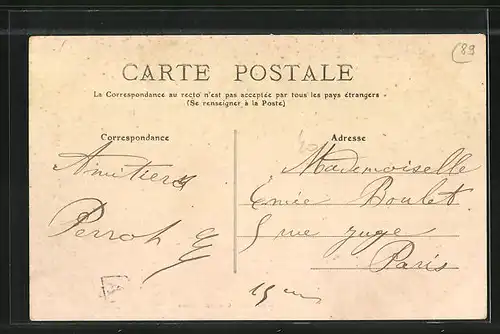 (89
CARTE POSTALE
La Correspondance au recto n'est pas acceptée par tous les pays étrangers
(Se renseigner à la Poste)
Correspondance
Adresse
Amitiers
Perrot
Mademoiselle
Emée Boulet
5 rue juge
Paris
15
A